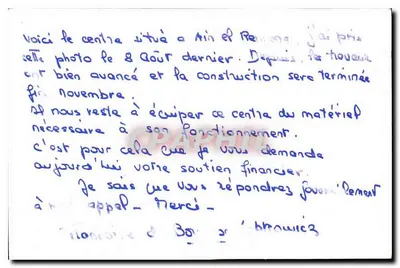 Voici le centre situé a Ain el j'ai pris
cette photo le 8 Août dernier. Depuis, les travaux
ont bien avancé et la construction sera terminée
fin novembre.
Il nous reste à équiper ce centre du matériel
nécessaire à son fonctionnement.
c'est pour cela que je vous demande
aujourd'hui votre soutien financier.
Je sais que vous répondrez
à appel - Merci -